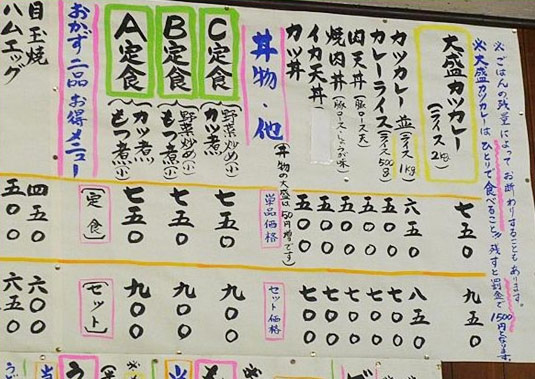 ※ごはんの残量によってお断わりすることもあります。
※大盛カツカレーはひとりで食べること〃残すと罰金で1500円となります。
大盛カツカレー(ライス2kg) 七五〇 九五〇
カツカレー並(ライス1kg) 六五〇 八五〇
カレーライス(ライス500g) 五五〇 七〇〇
肉天丼(豚ロース天) 五五〇 七〇〇
焼肉丼(豚ロースしょうが味) 五五〇 七〇〇
イカ天丼 五五〇 七〇〇
カツ丼 五五〇 七〇〇
(丼物の大盛は50円増です)
丼物・他 単品価格 セット価格
C定食(野菜炒め(小)カツ煮 七五〇 九〇〇
B定食(野菜炒め(小)もつ煮(小) 七五〇 九〇〇
A定食(カツ煮もつ煮(小) 七五〇 九〇〇
おかず二品お得メニュー(定食)(セット)
目玉焼 四五〇 六〇〇
ハムエッグ 五〇〇 六五〇